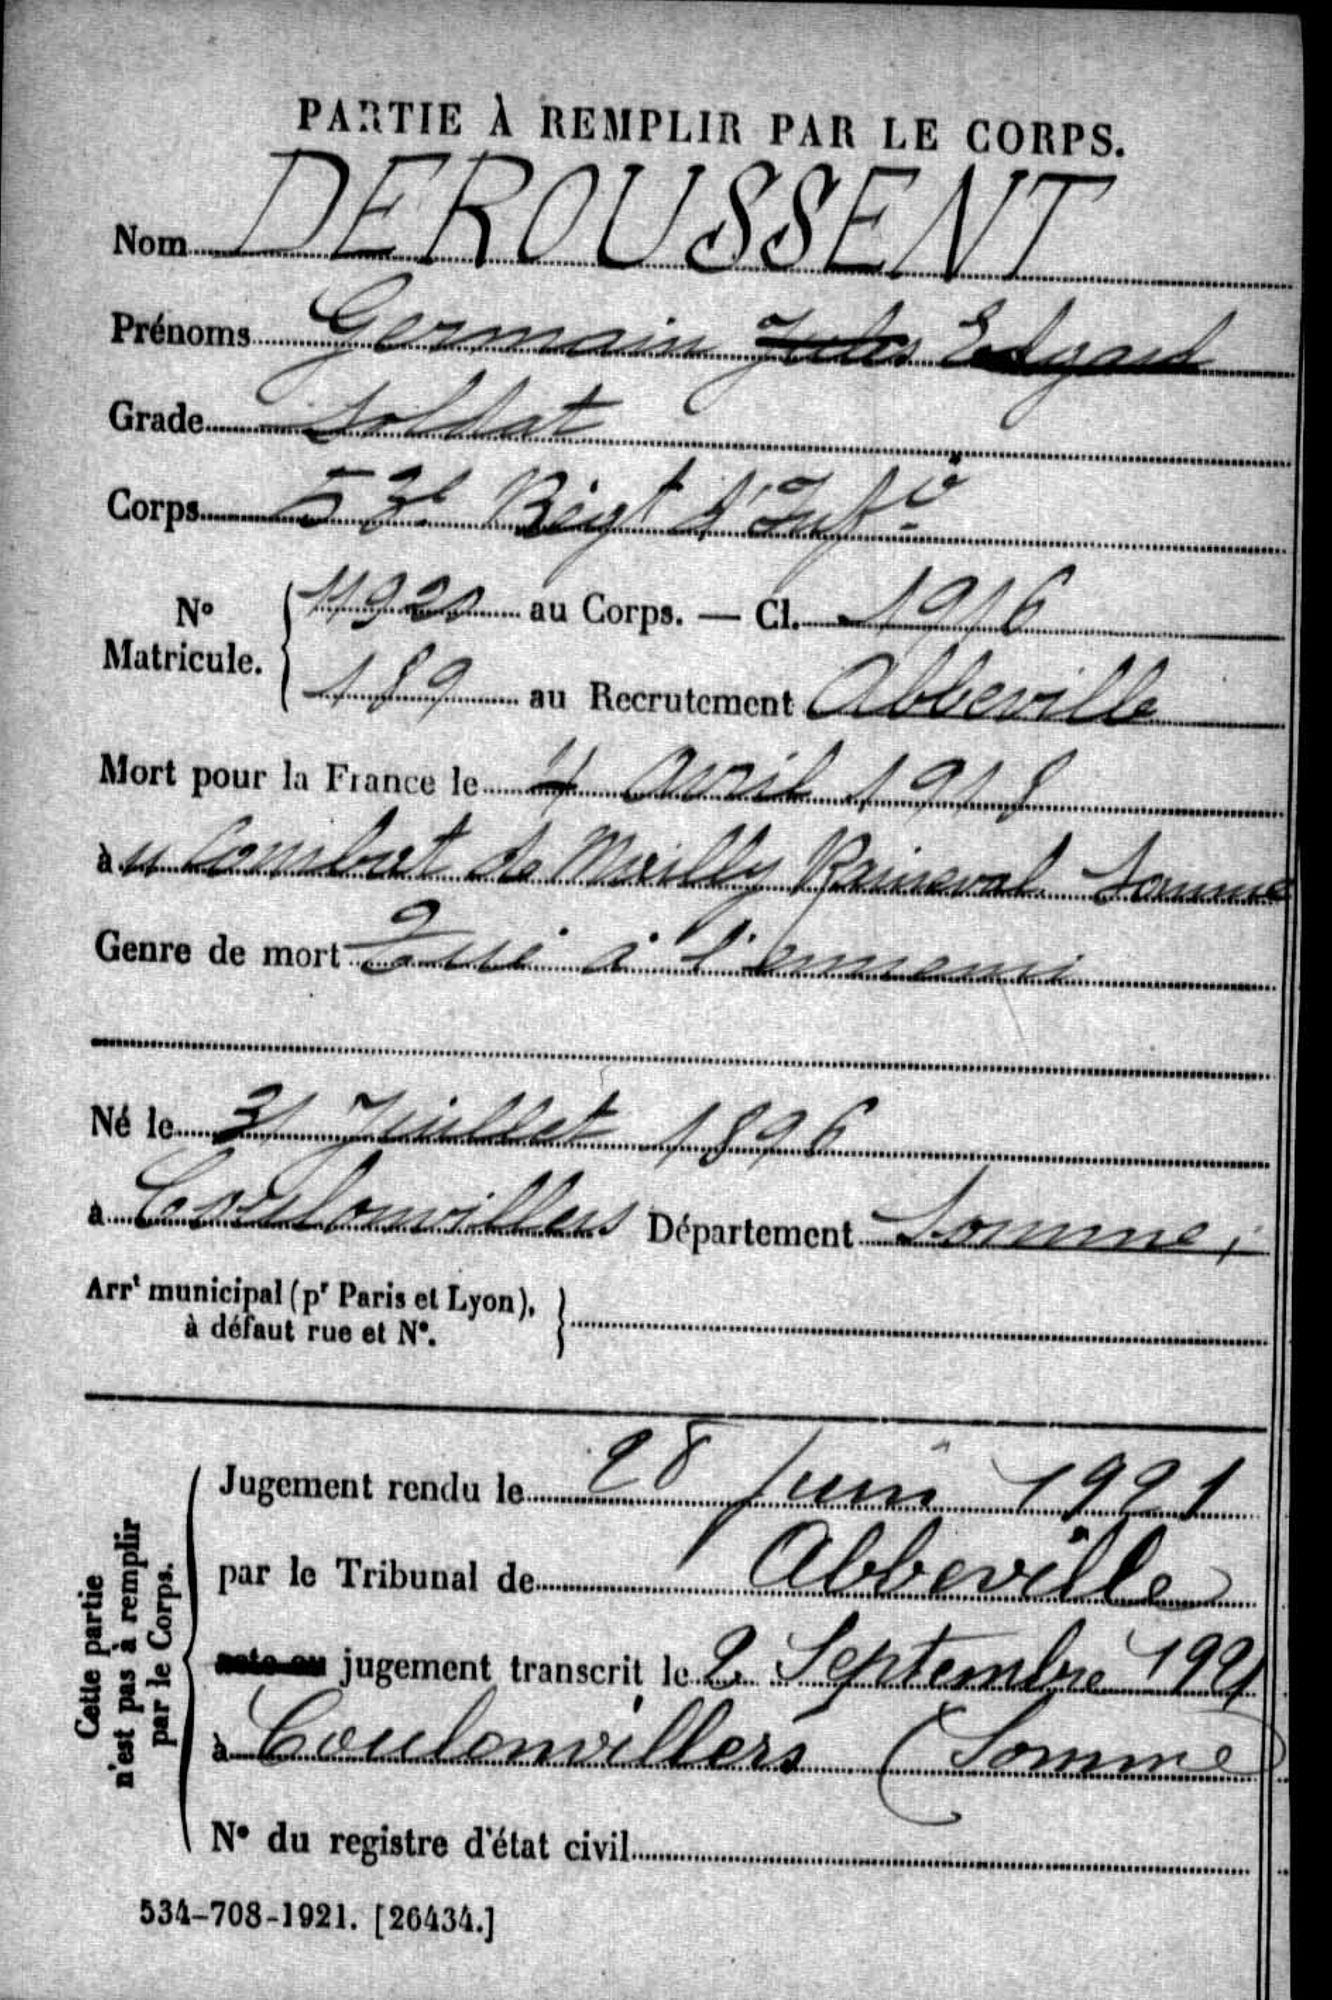 PARTIE À REMPLIR PAR LE CORPS.
Nom DEROUSSENT
Prénoms Germain Jules Edgard
Grade Soldat
Corps 53e Régt d'Infie
No Matricule. 11921 au Corps. — Cl. 1916
189 au Recrutement Abbeville
Mort pour la France le 4 avril 1918
à u Combat de Mailly Raineval Somme
Genre de mort Tué à l'ennemi
Né le 31 Juillet 1896
à Coulonvillers Département Somme
Arrt municipal (pr Paris et Lyon),
à défaut rue et No.
Cette partie
n'est pas à remplir
par le Corps.
Jugement rendu le 28 Juin 1921
par le Tribunal de Abbeville
acte ou jugement transcrit le 2 Septembre 1921
à Coulonvillers (Somme
No du registre d'état civil
534-708-1921. [26434.]